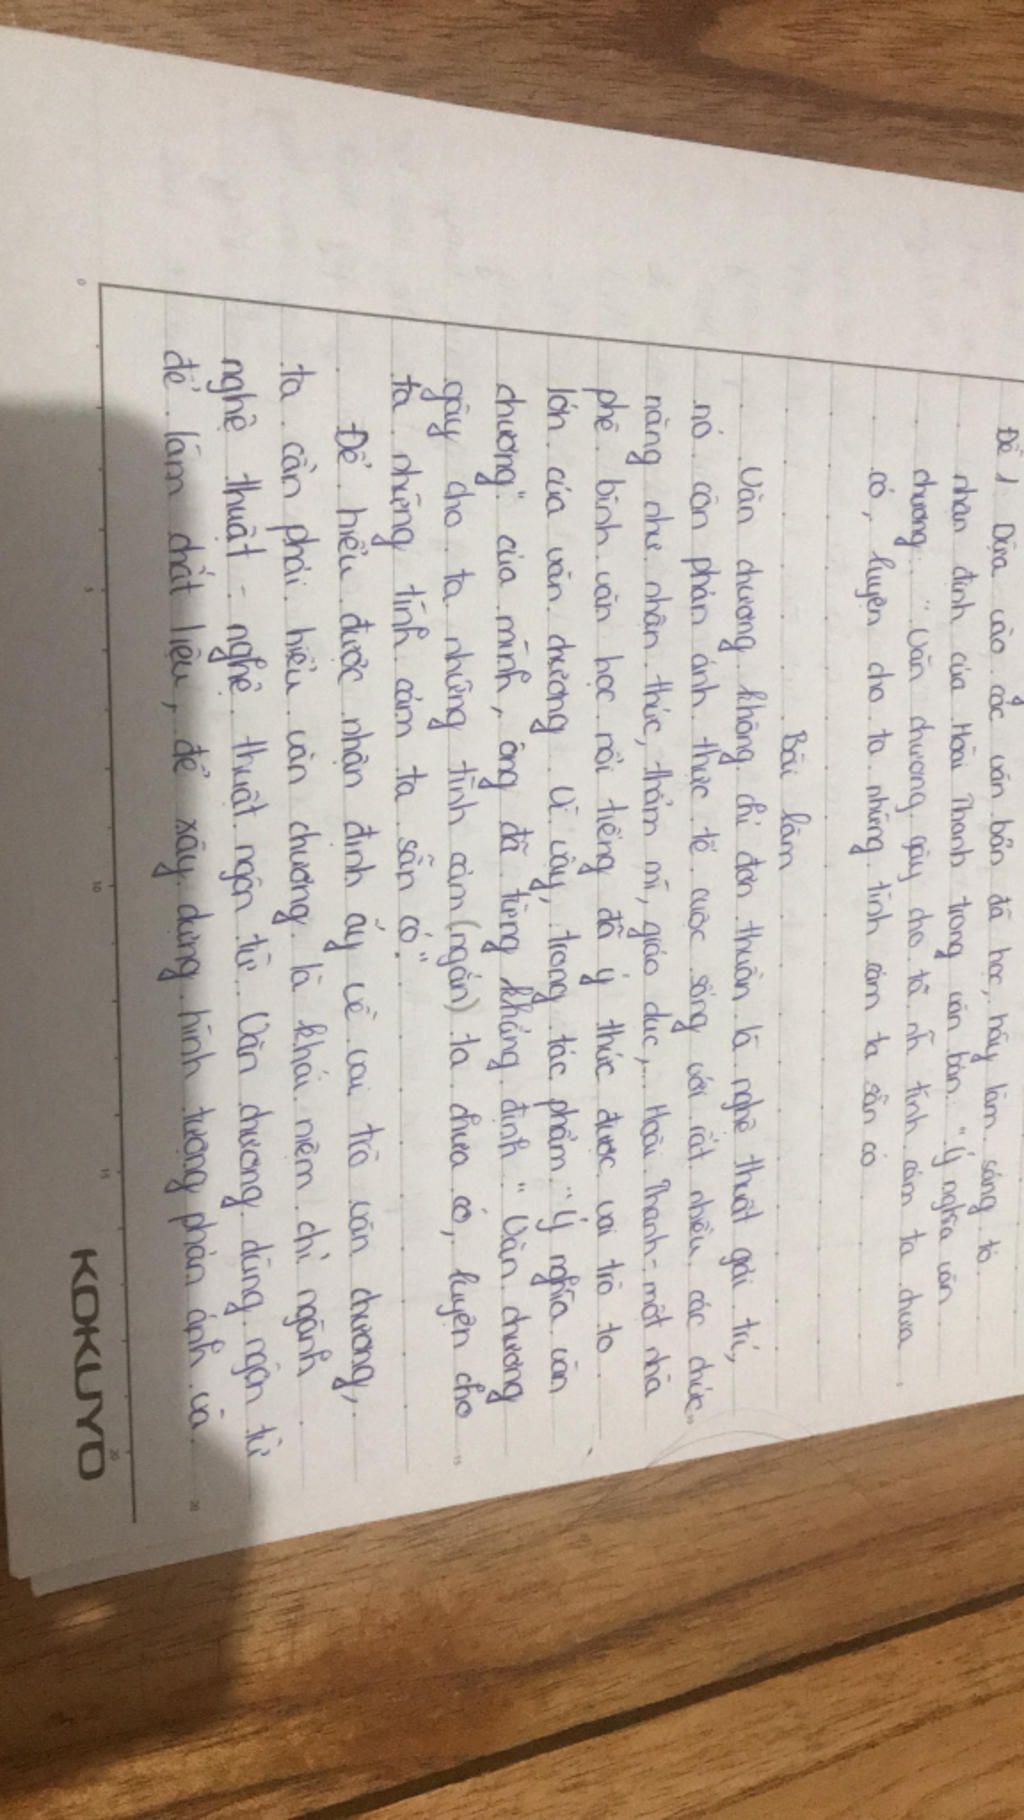 Đề 1 Dựa vào các văn bản đã học, hãy làm sáng tỏ
nhận định của Hoài Thanh trong văn bản "Ý nghĩa văn
chương": "Văn chương gây cho ta nh tình cảm ta chưa
có, luyện cho ta những tình cảm ta sẵn có
Bài làm
Văn chương không chỉ đơn thuần là nghệ thuật giải trí,
nó còn phản ánh thực tế cuộc sống với rất nhiều các chức
năng như nhận thức, thẩm mĩ, giáo dục,... Hoài Thanh - một nhà
phê bình văn học nổi tiếng đã ý thức được vai trò to
lớn của văn chương. Vì vậy, trong tác phẩm "Ý nghĩa văn
chương" của mình, ông đã từng khẳng định "Văn chương
gây cho ta những tình cảm (ngắn) ta chưa có, luyện cho
ta những tình cảm ta sẵn có".
Để hiểu được nhận định ấy về vai trò văn chương,
ta cần phải hiểu văn chương là khái niệm chỉ ngành
nghệ thuật - nghệ thuật ngôn từ. Văn chương dùng ngôn từ
để làm chất liệu, để xây dựng hình tượng phản ánh và
0
5
10
15
20
15
20
KOKUYO